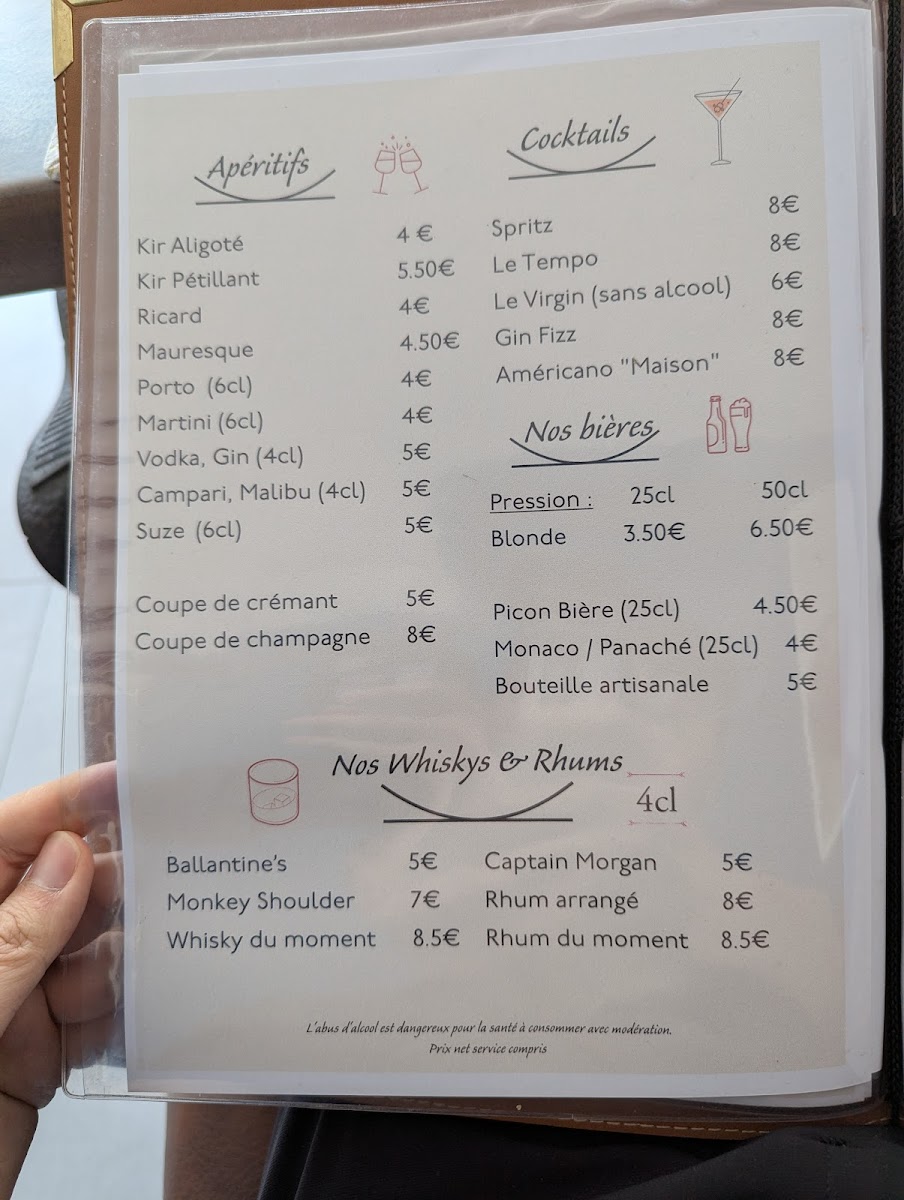 Apéritifs
Kir Aligoté 4 €
Kir Pétillant 5.50€
Ricard 4€
Mauresque 4.50€
Porto (6cl) 4€
Martini (6cl) 4€
Vodka, Gin (4cl) 5€
Campari, Malibu (4cl) 5€
Suze (6cl) 5€
Coupe de crémant 5€
Coupe de champagne 8€
Cocktails
Spritz 8€
Le Tempo 8€
Le Virgin (sans alcool) 6€
Gin Fizz 8€
Américano "Maison" 8€
Nos bières
Pression : 25cl 50cl
Blonde 3.50€ 6.50€
Picon Bière (25cl) 4.50€
Monaco / Panaché (25cl) 4€
Bouteille artisanale 5€
Nos Whiskys & Rhums
4cl
Ballantine's 5€ Captain Morgan 5€
Monkey Shoulder 7€ Rhum arrangé 8€
Whisky du moment 8.5€ Rhum du moment 8.5€
L'abus d'alcool est dangereux pour la santé à consommer avec modération.
Prix net service compris